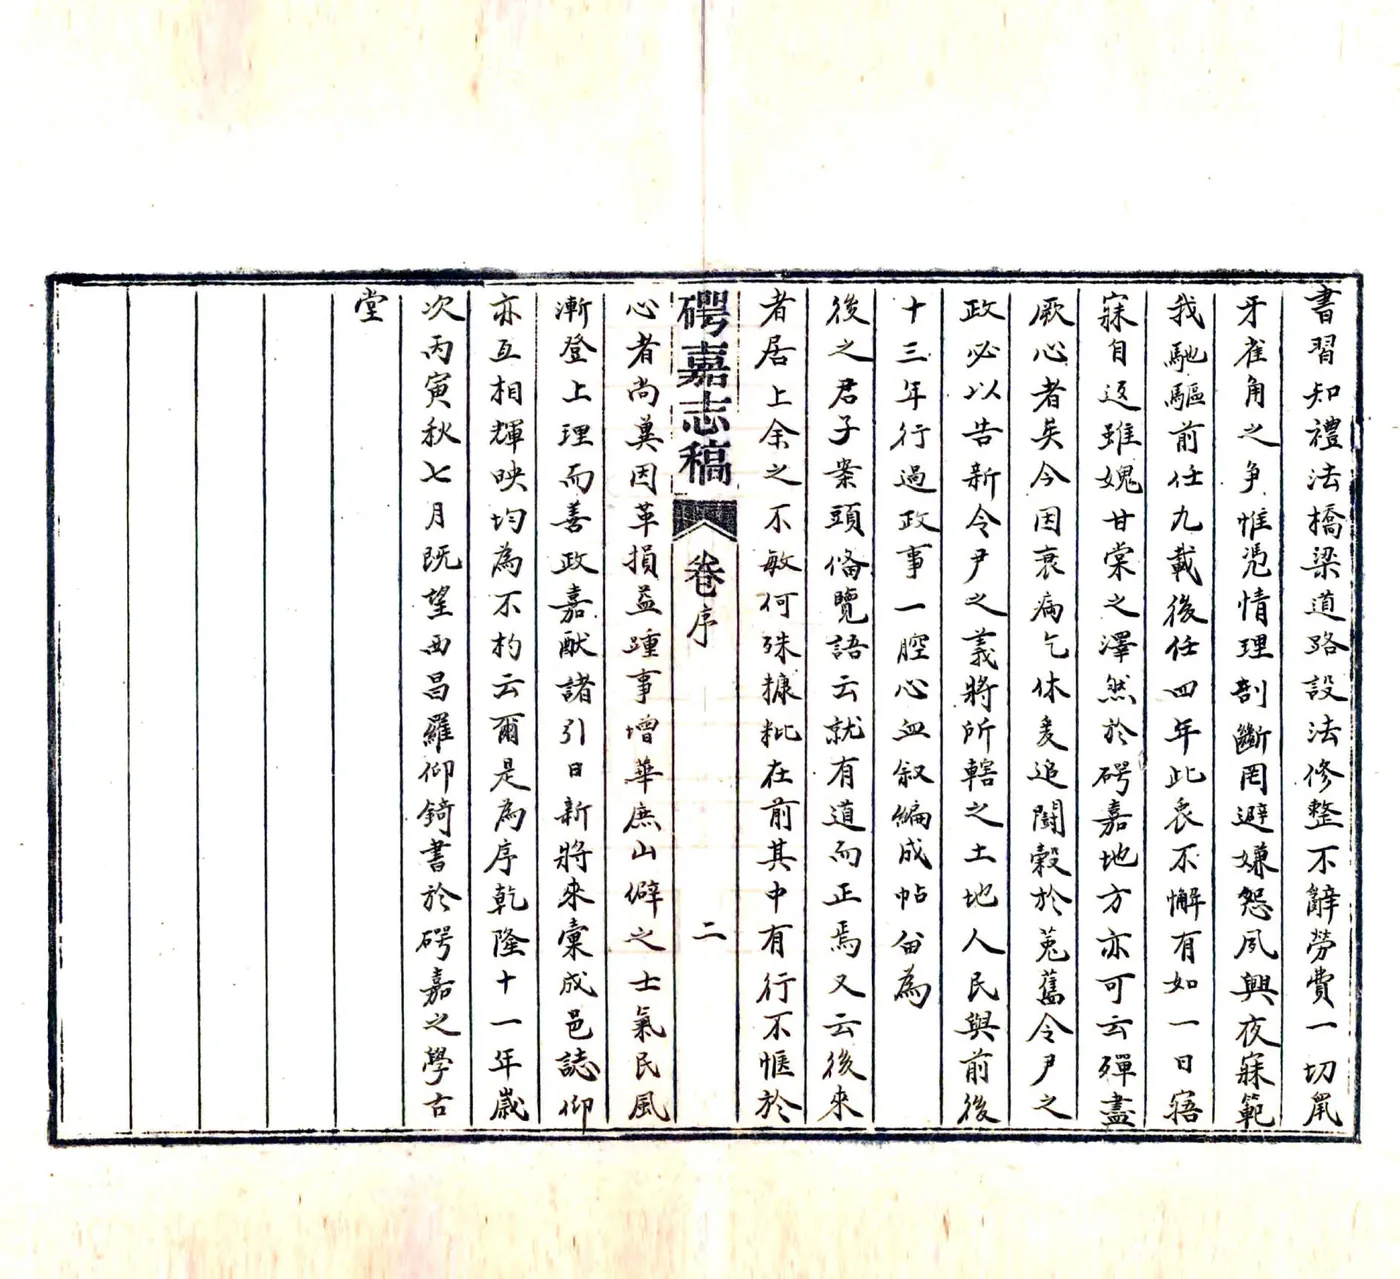 書習知禮法橋梁道路設法修整不辭勞費一切鼠
牙雀角之爭惟凴情理剖斷罔避嫌怨夙興夜寐範
我馳驅前任九載後任四年此衷不懈有如一日寤
寐自返雖媿甘棠之澤然於碍嘉地方亦可云殫盡
厥心者矣今因衰病乞休爰追鬭穀於菟舊令尹之
政必以告新令尹之義將所轄之土地人民與前後
十三年行過政事一腔心血叙編成帖畱為
後之君子案頭俻覽語云就有道而正焉又云後來
者居上余之不敏何殊糠粃在前其中有行不愜於
碍嘉志稿 卷序 二
心者尚冀因革損益踵事增華庶山僻之士氣民風
漸登上理而善政嘉猷諸引日新將來彙成邑誌仰
亦互相輝映均為不朽云爾是為序乾隆十一年歲
次丙寅秋七月既望西昌羅仰錡書於碍嘉之學古
堂